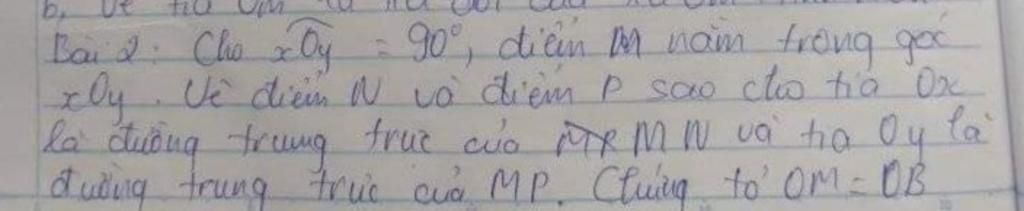 b, Vẽ tia Om là tia đối của
Bài 2: Cho xOy = 90°, điểm M nằm trong góc
xOy. Vẽ điểm N và điểm P sao cho tia Ox
là đường trung trực của MN và tia Oy là
đường trung trực của MP. Chứng tỏ OM = OB